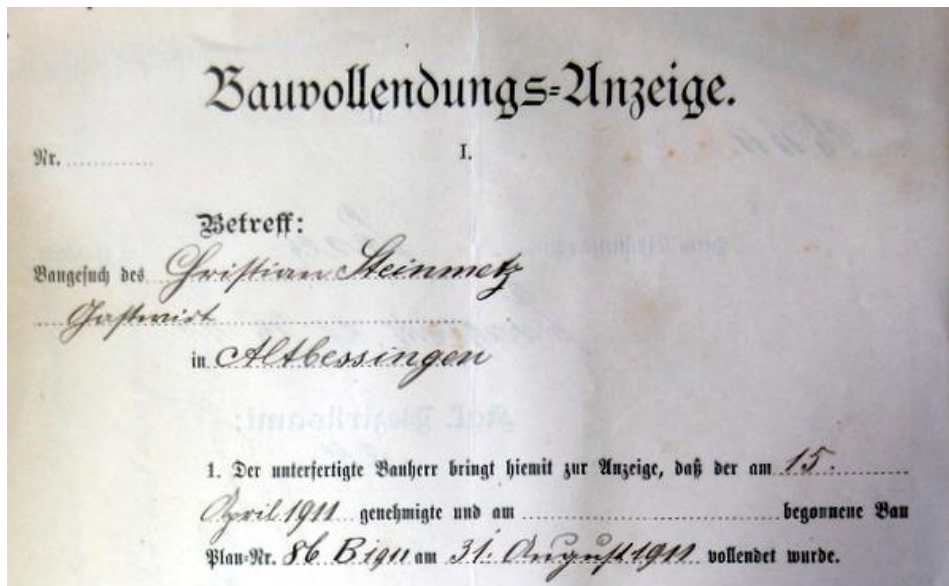 Bauvollendungs-Anzeige.
Nr.
I.
Betreff:
Baugesuch des Christian Steinmetz
Gastwirt
in Altbessingen
1. Der unterfertigte Bauherr bringt hiemit zur Anzeige, daß der am 15.
April 1911 genehmigte und am begonnene Bau
Plan-Nr. 86. am 31. August 1911 vollendet wurde.